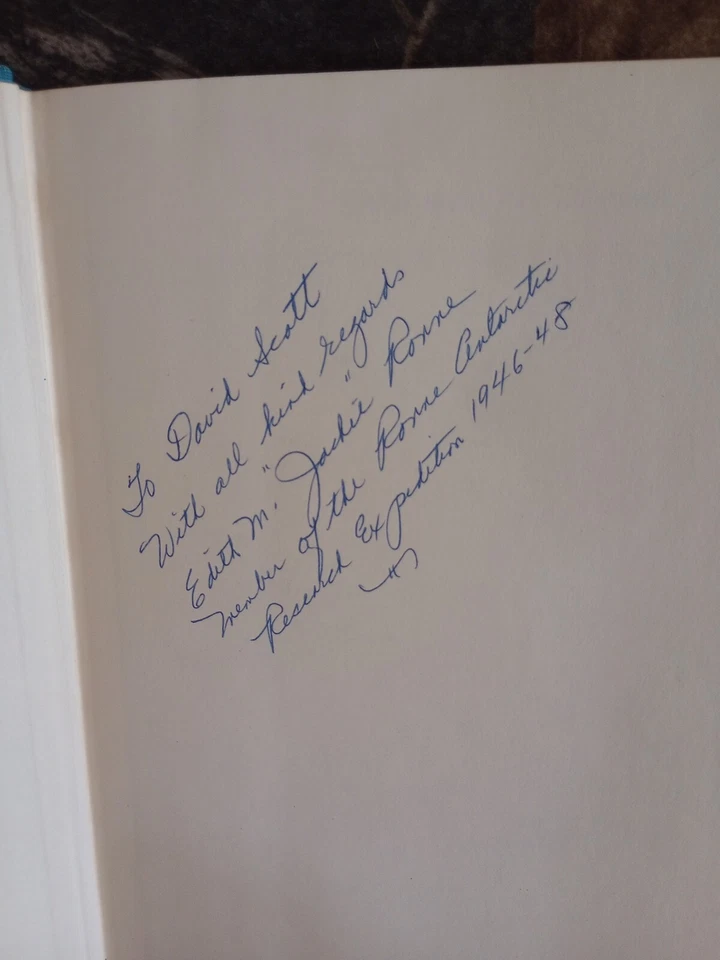 To David Scott
With all kind regards
Edith M. "Jackie" Ronne
member of the Ronne Antarctic
Research Expedition 1946-48